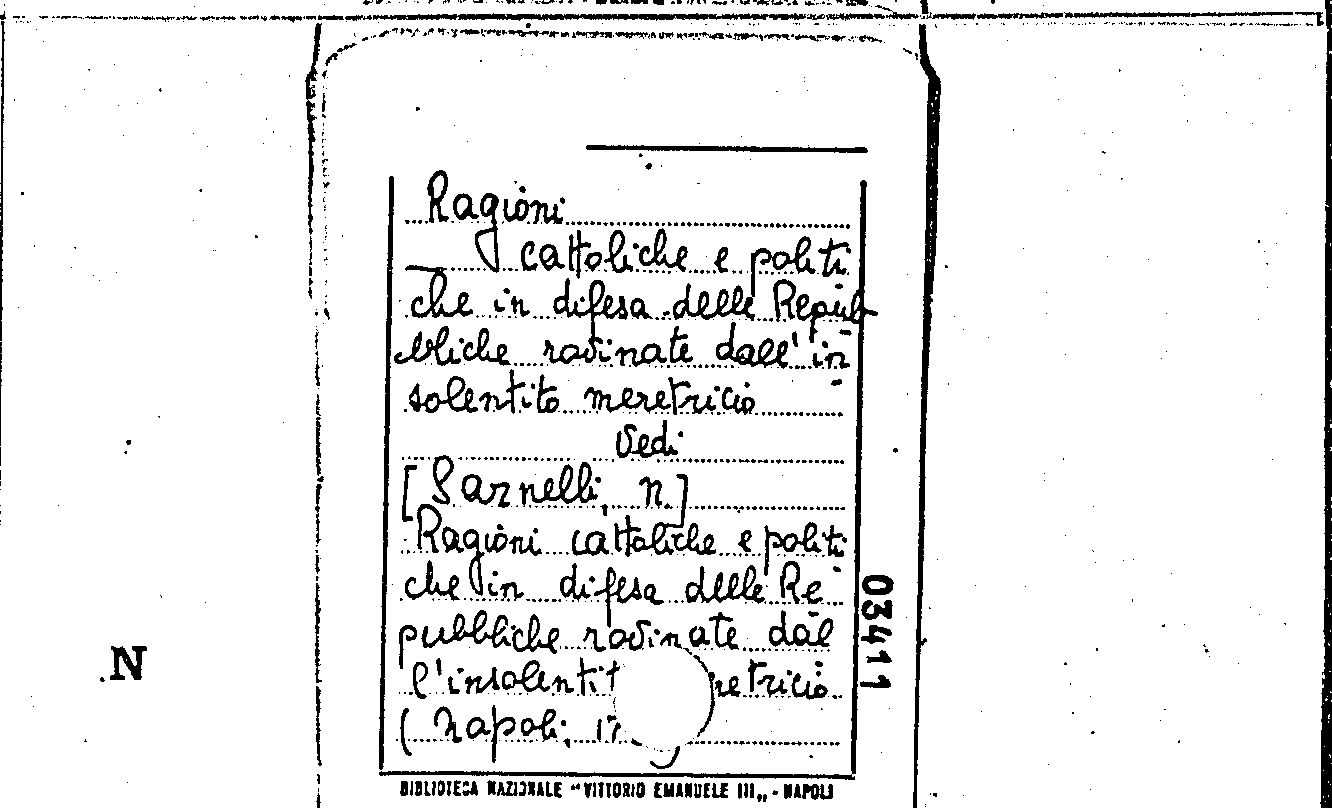 Ragioni
cattoliche e politi
che in difesa delle Repub-
bliche rovinate dall' in-
solentito meretricio
Vedi
[Sarnelli, n.]
Ragioni cattoliche e politi-
che in difesa delle Re-
pubbliche rovinate dal
l'insolentit retricio
(Napoli; 17
03411
N
BIBLIOTECA NAZIONALE "VITTORIO EMANUELE III„ - NAPOLI